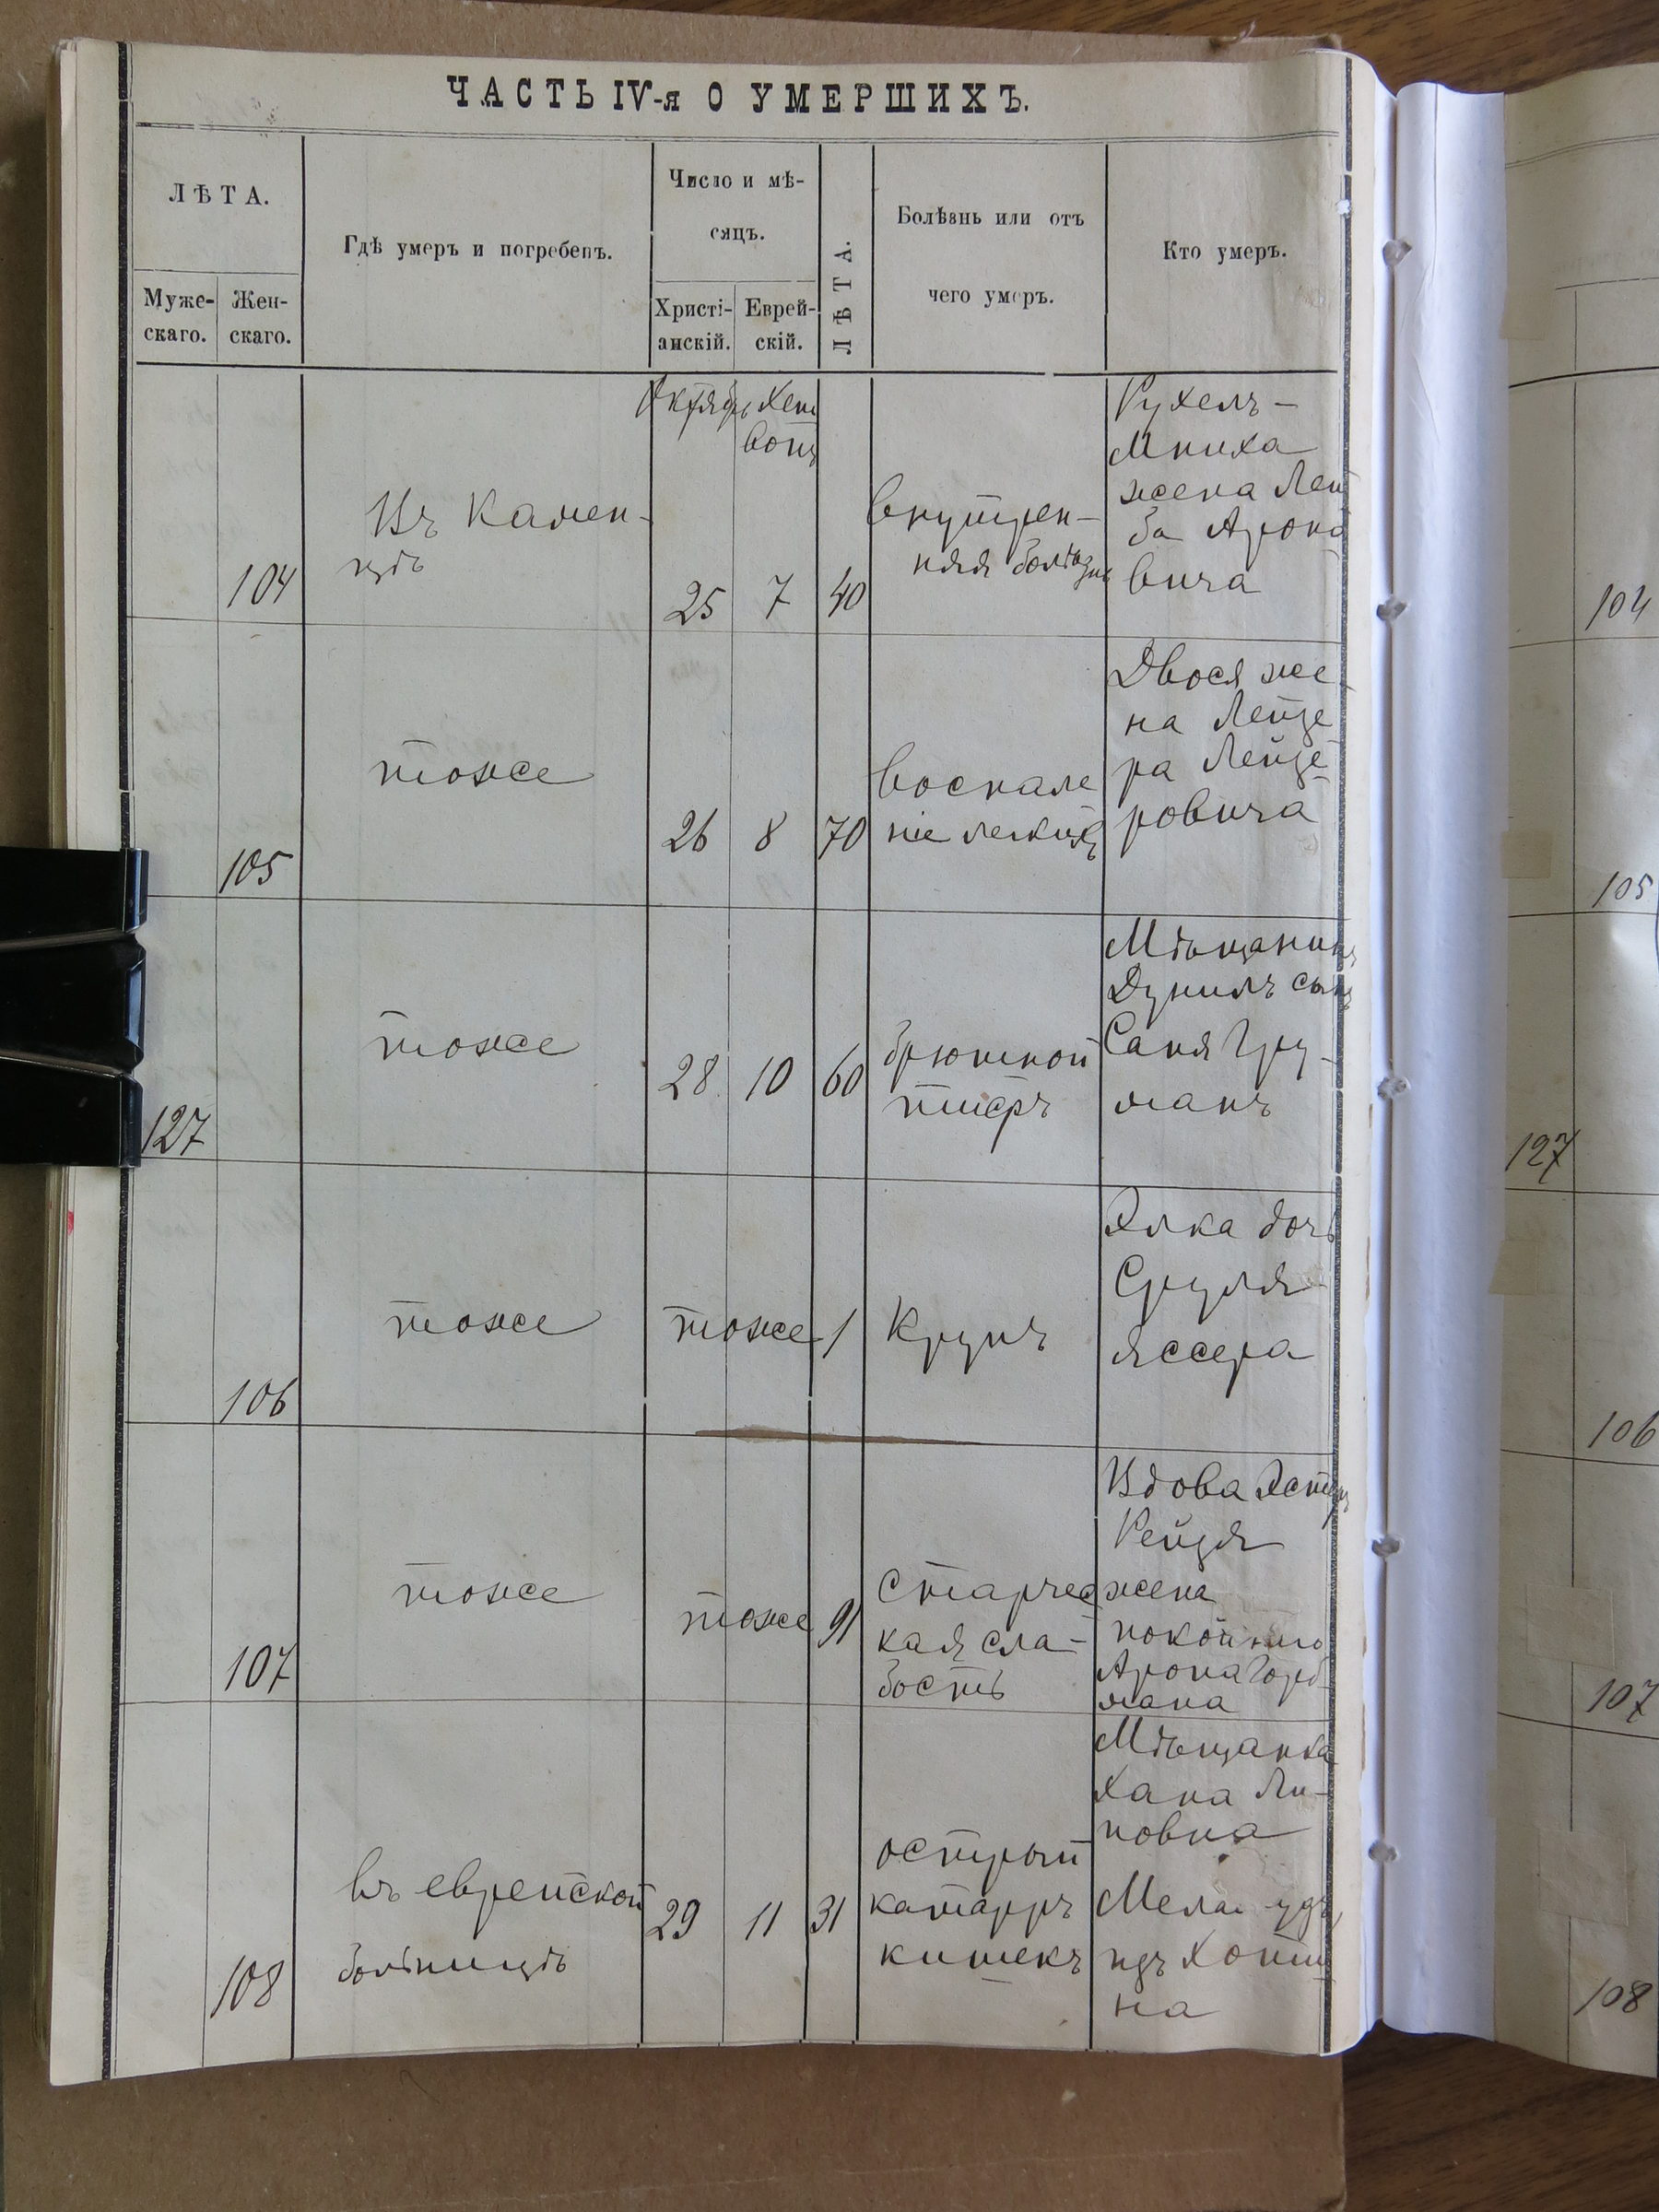 ЧАСТЬ IV-я О УМЕРШИХЪ.
ЛѢТА.
Муже-
скаго.
Жен-
скаго.
Гдѣ умеръ и погребенъ.
Число и мѣ-
сяцъ.
Христі-
анскій.
Еврей-
скій.
ЛѢТА.
Болѣзнь или отъ
чего умеръ.
Кто умеръ.
104
Въ Камен-
цѣ
Октябрь
Хеш
вонъ
25
7
40
внутрен-
няя болѣзнь
Рухель-
жена Лей
ба Ароно
вича
105
тоже
26
8
70
воспале
ніе легкихъ
Двося же
на Лейзе
ра Лейзе
ровича
127
тоже
28
10
60
брюшной
тифъ
Мѣщанинъ
сынъ
Саня Гру-
манъ
106
тоже
тоже
1
Крупъ
Элка дочь
Сруля
Яссера
107
тоже
тоже
91
Старчес
кая сла-
бость
Вдова Эстеръ
Рейзя
жена
покойнаго
Арона Горд
мана
108
въ еврейской
больницѣ
29
11
31
острый
катарръ
кишекъ
Мѣщанка
Хана Ли-
повна
изъ Хоти
на
104
105
127
106
107
108